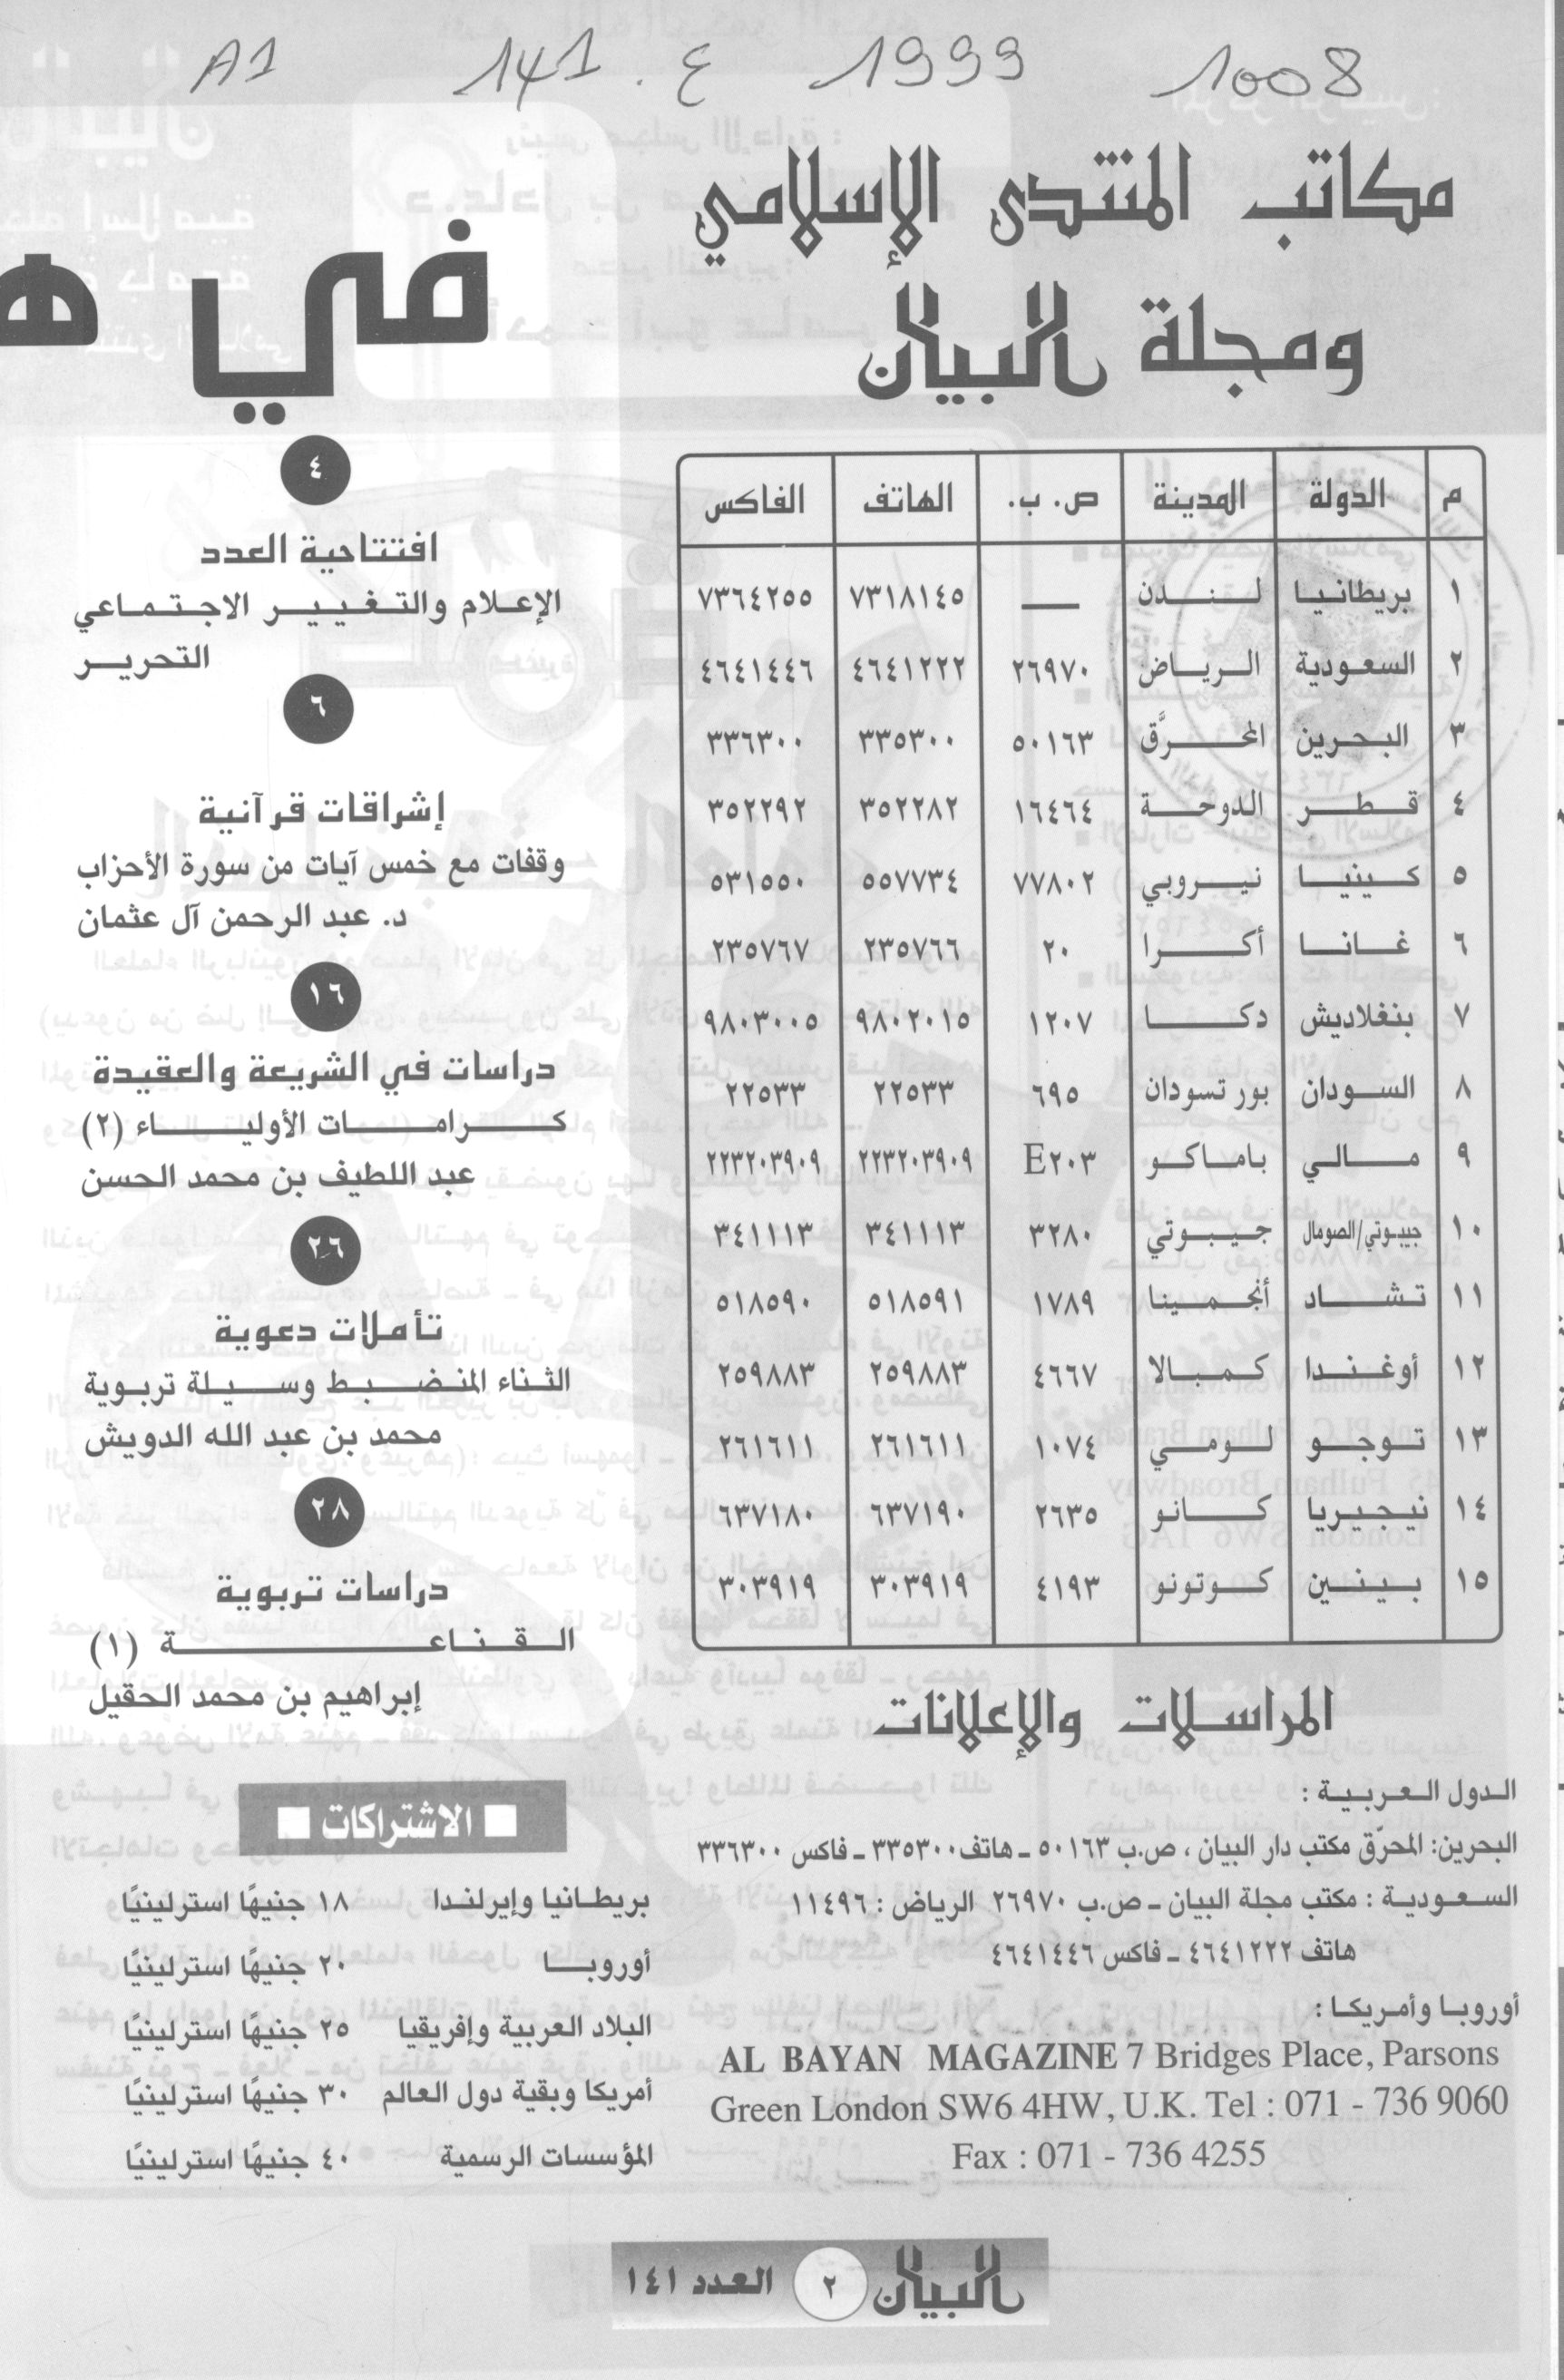 1008 1999 ع . 141 A1
مكاتب المنتدى الإسلامي
ومجلة البيان
م الدولة المدينة ص. ب. الهاتف الفاكس
١ بريطانيا لندن — ٧٣١٨١٤٥ ٧٣٦٤٢٥٥
٢ السعودية الرياض ٢٦٩٧٠ ٤٦٤١٢٢٢ ٤٦٤١٤٤٦
٣ البحرين المحرَّق ٥٠١٦٣ ٣٣٥٣٠٠ ٣٣٦٣٠٠
٤ قطر الدوحة ١٦٤٦٤ ٣٥٢٢٨٢ ٣٥٢٢٩٢
٥ كينيا نيروبي ٧٧٨٠٢ ٥٥٧٧٣٤ ٥٣١٥٥٠
٦ غانا أكرا ٢٠ ٢٣٥٧٦٦ ٢٣٥٧٦٧
٧ بنغلاديش دكا ١٢٠٧ ٩٨٠٢٠١٥ ٩٨٠٣٠٠٥
٨ السودان بور تسودان ٦٩٥ ٢٢٥٣٣ ٢٢٥٣٣
٩ مالي باماكو E٢٠٣ ٢٢٣٢٠٣٩٠٩ ٢٢٣٢٠٣٩٠٩
١٠ جيبوتي/الصومال جيبوتي ٣٢٨٠ ٣٤١١١٣ ٣٤١١١٣
١١ تشاد أنجمينا ١٧٨٩ ٥١٨٥٩١ ٥١٨٥٩٠
١٢ أوغندا كمبالا ٤٦٦٧ ٢٥٩٨٨٣ ٢٥٩٨٨٣
١٣ توجو لومي ١٠٧٤ ٢٦١٦١١ ٢٦١٦١١
١٤ نيجيريا كانو ٢٦٣٥ ٦٣٧١٩٠ ٦٣٧١٨٠
١٥ بينين كوتونو ٤١٩٣ ٣٠٣٩١٩ ٣٠٣٩١٩
المراسلات والإعلانات
الدول العربية :
البحرين: المحرّق مكتب دار البيان ، ص.ب ٥٠١٦٣ ـ هاتف٣٣٥٣٠٠ ـ فاكس ٣٣٦٣٠٠
السعودية : مكتب مجلة البيان ـ ص.ب ٢٦٩٧٠ الرياض : ١١٤٩٦
هاتف ٤٦٤١٢٢٢ ـ فاكس ٤٦٤١٤٤٦
أوروبا وأمريكا :
AL BAYAN MAGAZINE 7 Bridges Place, Parsons
Green London SW6 4HW, U.K. Tel : 071 - 736 9060
Fax : 071 - 736 4255
في ه
٤
افتتاحية العدد
الإعلام والتغيير الاجتماعي
التحرير
٦
إشراقات قرآنية
وقفات مع خمس آيات من سورة الأحزاب
د. عبد الرحمن آل عثمان
١٦
دراسات في الشريعة والعقيدة
كرامات الأولياء (٢)
عبد اللطيف بن محمد الحسن
٢٦
تأملات دعوية
الثناء المنضبط وسيلة تربوية
محمد بن عبد الله الدويش
٢٨
دراسات تربوية
القناعة (١)
إبراهيم بن محمد الحقيل
■ الاشتراكات ■
بريطانيا وإيرلندا ١٨ جنيهًا استرلينيًا
أوروبا ٢٠ جنيهًا استرلينيًا
البلاد العربية وإفريقيا ٢٥ جنيهًا استرلينيًا
أمريكا وبقية دول العالم ٣٠ جنيهًا استرلينيًا
المؤسسات الرسمية ٤٠ جنيهًا استرلينيًا
البيان ٢ العدد ١٤١